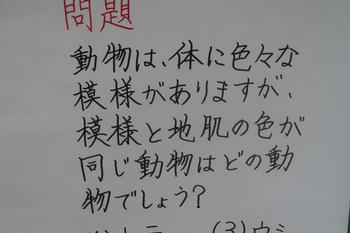 問題
動物は、体に色々な
模様がありますが、
模様と地肌の色が
同じ動物はどの動
物でしょう?
(3)ウシ